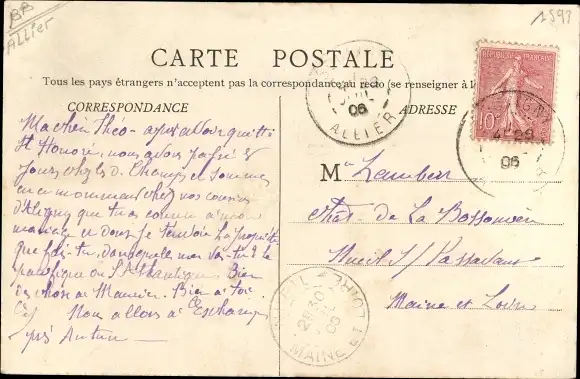 BB
Allier
1593
CARTE POSTALE
Tous les pays étrangers n'acceptent pas la correspondance au recto (se renseigner à la
CORRESPONDANCE
ADRESSE
REPUBLIQUE FRANCAISE
10c
06
ALLIER
06
Ma chère Théo - après avoir quitté
St Honoré, nous avons passé 8
jours chez les D. Champs et sommes
en ce moment chez nos cousins
d'Aligny que tu as connu à mon
mariage et dont je t'envoie la propriété
que fais-tu, dans quelle mer vas-tu ? le
pacifique ou l'Atlantique. Bien
des choses à Maurice. Bien à toi
Nous allons à
près Autun
M Lambert
Chat. de La
Nueil s/ Passavant
Maine et Loire
06
MAINE ET LOIRE